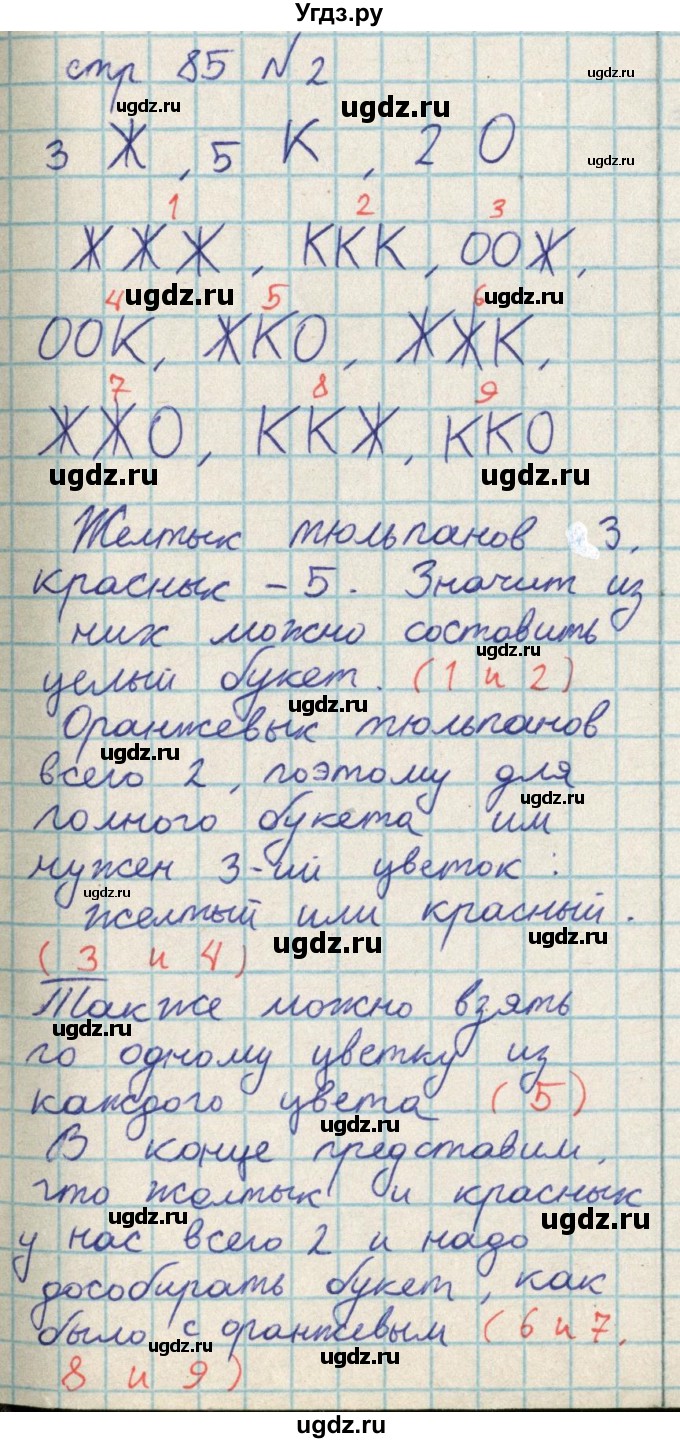 Угдз.ру
стр 85 N2
ugdz.ru
ugdz.ru
ugdz.ru
3 Ж, 5 К, 2 О
ugdz.ru
1 2 3
ЖЖЖ, ККК, ООЖ,
4 ugdz.ru 5 6 ugdz.ru
ООК, ЖКО, ЖЖК,
7 8 9
ЖЖО, ККЖ, ККО
ugdz.ru ugdz.ru ugdz.ru
Желтых тюльпанов 3,
красных - 5. Значит из
них можно составить
ugdz.ru
целый букет. (1 и 2)
ugdz.ru
Оранжевых тюльпанов
ugdz.ru
всего 2, поэтому для
ugdz.ru
полного букета им
нужен 3-ий цветок:
ugdz.ru
желтый или красный.
ugdz.ru ugdz.ru
(3 и 4)
Также можно взять
ugdz.ru
по одному цветку из
каждого цвета (5)
ugdz.ru
В конце представим,
что желтых и красных
ugdz.ru ugdz.ru
у нас всего 2 и надо
дособирать букет, как
было с оранжевым (6 и 7,
ugdz.ru ugdz.ru
8 и 9)
ugdz.ru